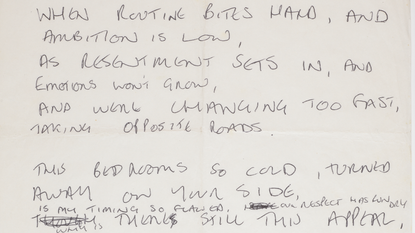 WHEN ROUTINE BITES HARD, AND
AMBITION IS LOW,
AS RESENTMENT SETS IN, AND
EMOTIONS WON'T GROW,
AND WERE CHANGING TOO FAST,
TAKING OPPOSITE ROADS.
THIS BEDROOMS SO COLD, TURNED
AWAY ON YOUR SIDE,
IS MY TIMING SO FLAWED. OUR RESPECT HAS RUN DRY
WHY IS
THERES STILL THIS APPEAL,